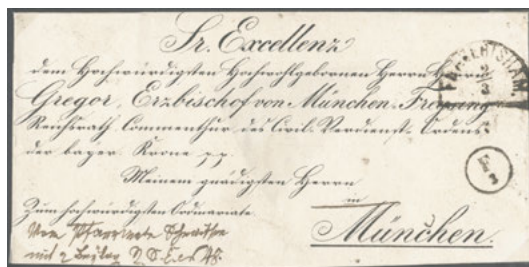 Sr. Excellenz
dem Hochwürdigsten Hochwohlgebornen Herrn Herrn
Gregor, Erzbischof von München-Freysing
Reichsrath, Commenthur des Civil-Verdienst-Ordens
der bayer. Krone
Meinem gnädigsten Herrn
in
Zum hochwürdigsten Ordinariate
München.
mit 2 Beilag
2
3